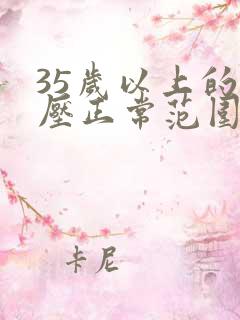 35歲以上的
壓正常范围
卡尼